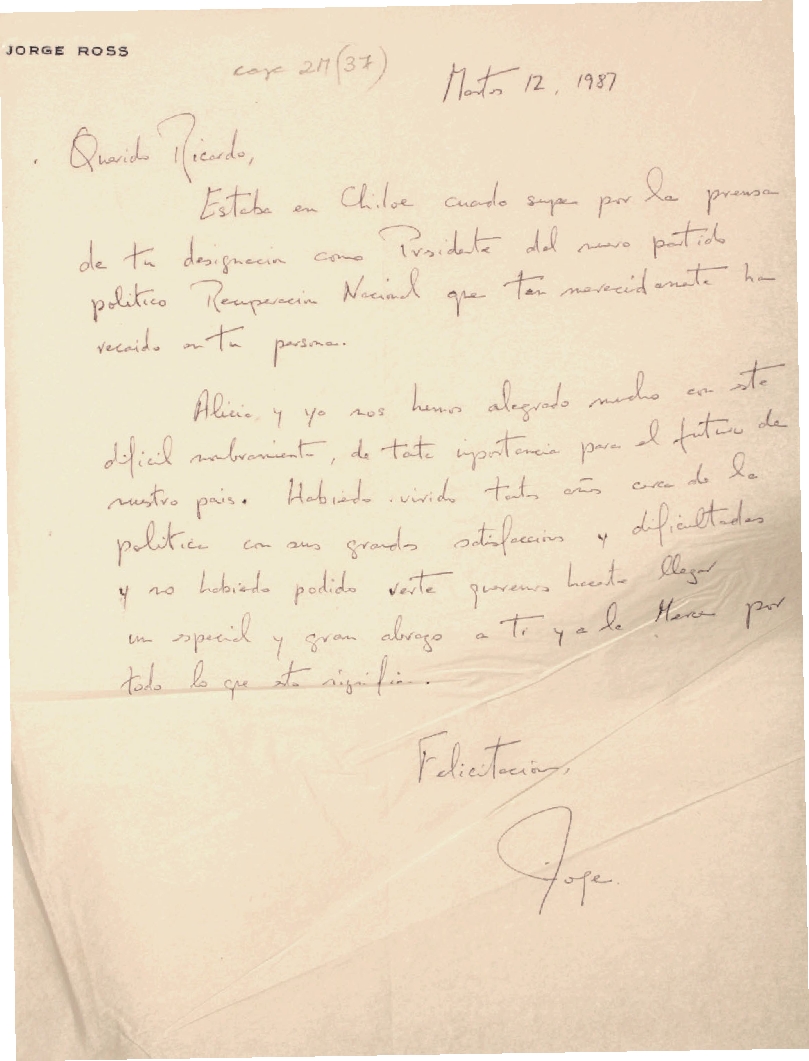 JORGE ROSS
caja 2M(37)
Martes 12, 1987
Querido Ricardo,
Estaba en Chiloe cuado supe por la prensa
de tu designacion como Presidente del nuevo partido
politico Recuperacion Nacional que tan merecidamente ha
recaido en tu persona.
Alicia y yo nos hemos alegrado mucho con este
dificil nombramiento, de tata importancia para el futuro de
nuestro pais. Habiedo vivido tatos años cerca de la
politica con sus grandes satisfaccions y dificultades
y no habiedo podido verte queremos hacerte llegar
un especial y gran abrazo a Ti y a la por
todo lo que esto significa.
Felicitaciones,
Jorge.